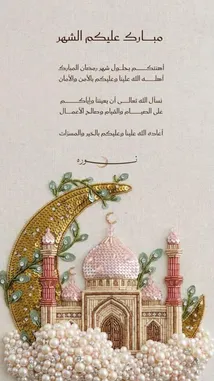 مبارك عليكم الشهر
أهنئكم بحلول شهر رمضان المبارك
أهله الله علينا وعليكم بالأمن والأمان
نسأل الله تعالى أن يعيننا وإياكم
على الصيام والقيام وصالح الأعمال
أعاده الله علينا وعليكم بالخير والمسرات
نوره